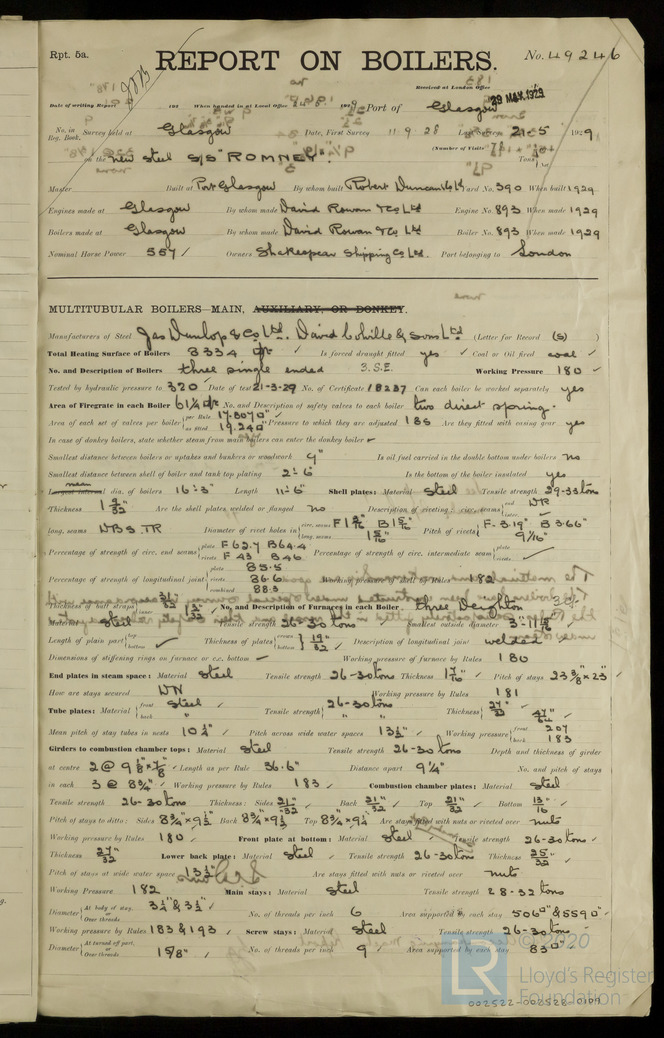 Rpt. 5a.
REPORT ON BOILERS.
No. 49246
Received at London Office 29 MAY 1929
Date of writing Report 192 When handed in at Local Office 192 Port of Glasgow
No. in Reg. Book. Survey held at Glasgow Date, First Survey 11.9.28 Last Survey 21-5 1929
on the new steel S/S "ROMNEY" (Number of Visits 78) Tons
Master Built at Port Glasgow By whom built Robert Duncan & Co Ld Yard No. 390 When built 1929
Engines made at Glasgow By whom made David Rowan & Co Ltd Engine No. 893 When made 1929
Boilers made at Glasgow By whom made David Rowan & Co Ltd Boiler No. 893 When made 1929
Nominal Horse Power 557 Owners Shakespear Shipping Co Ltd. Port belonging to London
MULTITUBULAR BOILERS—MAIN, AUXILIARY, OR DONKEY.
Manufacturers of Steel Jas Dunlop & Co Ltd. David Colville & Sons Ltd (Letter for Record (S) )
Total Heating Surface of Boilers 8334 Is forced draught fitted yes Coal or Oil fired coal
No. and Description of Boilers three single ended 3.S.E. Working Pressure 180
Tested by hydraulic pressure to 320 Date of test 21-3-29 No. of Certificate 18237 Can each boiler be worked separately yes
Area of Firegrate in each Boiler 61¼ No. and Description of safety valves to each boiler two direct spring.
Area of each set of valves per boiler per Rule 17.8070" as fitted 19.240" Pressure to which they are adjusted 185 Are they fitted with easing gear yes
In case of donkey boilers, state whether steam from main boilers can enter the donkey boiler
Smallest distance between boilers or uptakes and bunkers or woodwork 9" Is oil fuel carried in the double bottom under boilers no
Smallest distance between shell of boiler and tank top plating 2'-6" Is the bottom of the boiler insulated yes
Largest internal mean dia. of boilers 16'-3" Length 11'-6" Shell plates: Material Steel Tensile strength 29-33 tons
Thickness 1 9/32" Are the shell plates welded or flanged no Description of riveting: circ. seams end DR inter.
long. seams DBS.TR Diameter of rivet holes in circ. seams long. seams Pitch of rivets F. 3.19" B 3.66" 9 9/16"
Percentage of strength of circ. end seams plate F 62.7 B 64.4 rivets F 43 B 46 Percentage of strength of circ. intermediate seam plate rivets
Percentage of strength of longitudinal joint plate 85.5 rivets 86.6 combined 88.3 Working pressure of shell by Rules 182
Thickness of butt straps No. and Description of Furnaces in each Boiler three Deighton
Material Steel Tensile strength 26-30 tons Smallest outside diameter
Length of plain part top bottom Thickness of plates crown bottom 19/32" Description of longitudinal joint welded
Dimensions of stiffening rings on furnace or c.c. bottom Working pressure of furnace by Rules 180
End plates in steam space: Material Steel Tensile strength 26-30 tons Thickness 1 7/16" Pitch of stays 23 3/8" x 23"
How are stays secured DN Working pressure by Rules 181
Tube plates: Material front back Steel " Tensile strength 26-30 tons " Thickness 27/32" 47/64"
Mean pitch of stay tubes in nests 10¼" Pitch across wide water spaces 13½" Working pressure front 207 back 183
Girders to combustion chamber tops: Material Steel Tensile strength 26-30 tons Depth and thickness of girder
at centre 2 @ 9⅛" x ⅞" Length as per Rule 36.6" Distance apart 9¼" No. and pitch of stays
in each 3 @ 8¾" Working pressure by Rules 183 Combustion chamber plates: Material Steel
Tensile strength 26-30 tons Thickness: Sides 21/32" Back 21/32" Top 21/32" Bottom 13/16"
Pitch of stays to ditto: Sides 8¾" x 9½ Back 8¾" x 9½ Top 8¾" x 9¼ Are stays fitted with nuts or riveted over nuts
Working pressure by Rules 180 Front plate at bottom: Material Steel Tensile strength 26-30 tons
Thickness 27/32" Lower back plate: Material Steel Tensile strength 26-30 tons Thickness 25/32"
Pitch of stays at wide water space 13½" Are stays fitted with nuts or riveted over nuts
Working Pressure 182 Main stays: Material Steel Tensile strength 28-32 tons
Diameter At body of stay, or Over threads 3¼" & 3½" No. of threads per inch 6 Area supported by each stay 506" & 559"
Working pressure by Rules 183 & 193 Screw stays: Material Steel Tensile strength 26-30 tons
Diameter At turned off part, or Over threads 1 5/8" No. of threads per inch 9 Area supported by each stay 83"
LR
© 2020
Lloyd's Register
Foundation
002522-002528-0109